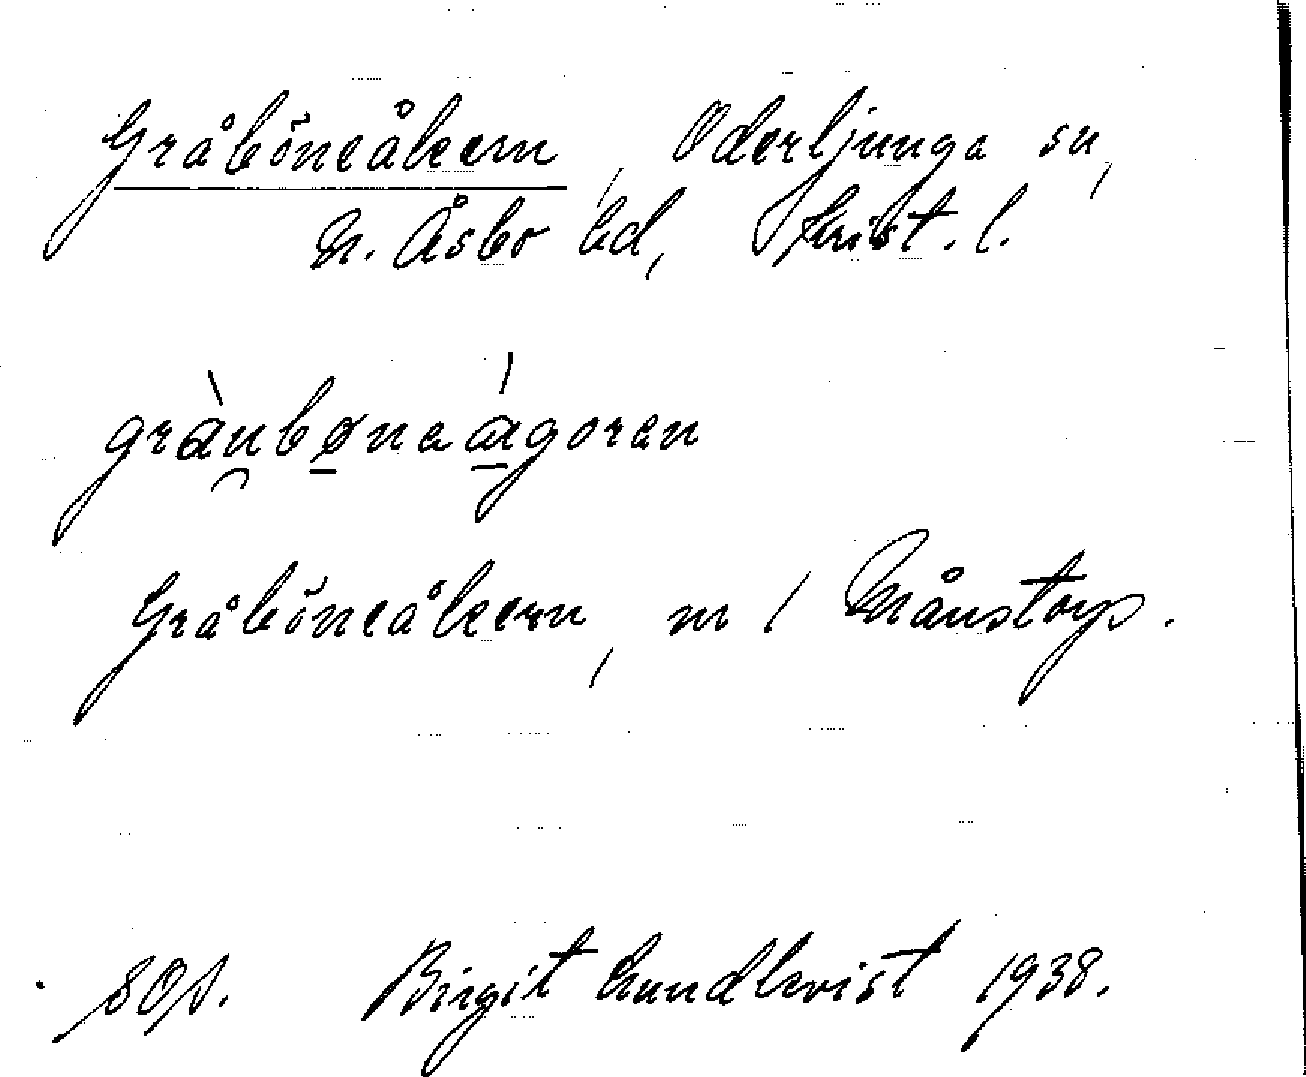 Gråböneåkern, Oderljunga sn,
N. Åsbo hd, Krist. l.
gràu̯bønaágoren
Gråböneåkern, m / Månstorp.
Birgit Lundkvist 1938.